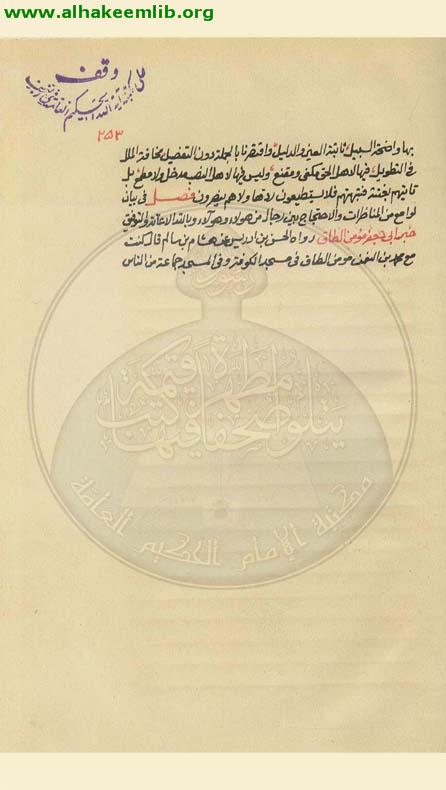 www.alhakeemlib.org
وقف
على مكتبة آية الله الحكيم العامة
٢٥٣
بها واضحة السبيل ثابتة العين والدليل واقتصرنا بالجملة دون التفصيل مخافة الملل
في التطويل فيها لاهل الحق مكفى ومقنع وليس فيها لاهل التعسف مدخل ولا مطمع بل
تاتيهم بغتة فتبهتهم فلا يستطيعون ردها ولا هم ينظرون فصل في بيان
لوامع من المناظرات والاحتجاج بين رجال من هولاء وهولاء وبالله الاعانة والتوفيق
خبر ابي جعفر مومن الطاق رواه الحسن بن ادريس عن هشام بن سالم قال كنت
مع محمد بن النعمن مومن الطاق في مسجد الكوفة وفي المسجد جماعة من الناس
يتلو صحفا مطهرة فيها كتب قيمة
مكتبة الإمام الحكيم العامة